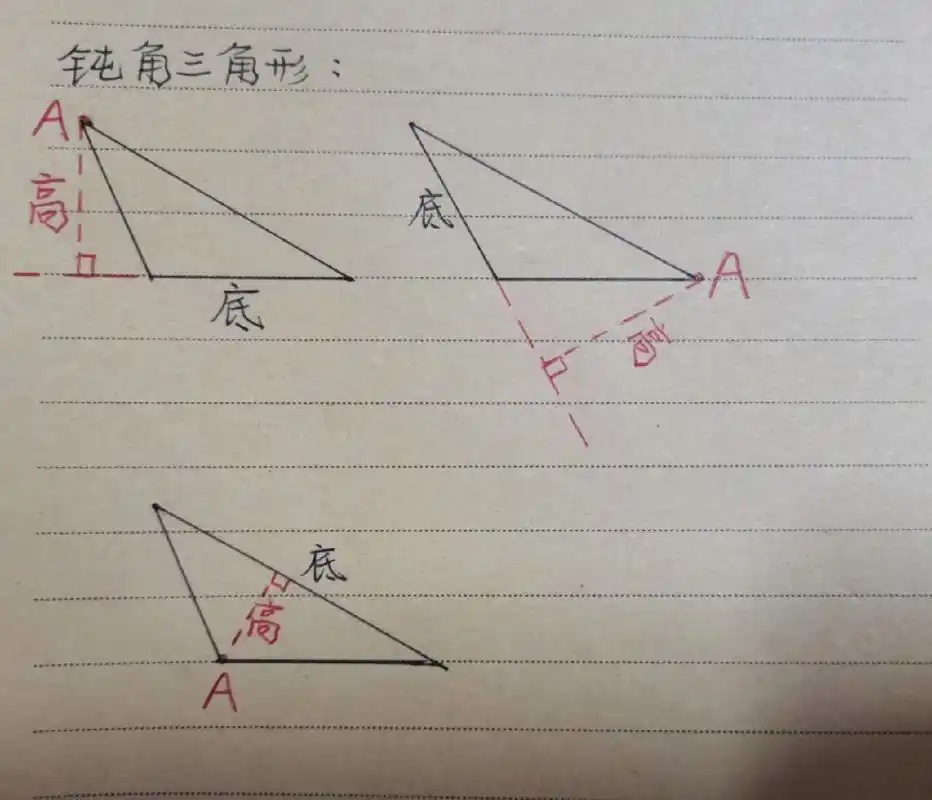 钝角三角形：
A
高
底
底
A
高
底
高
A